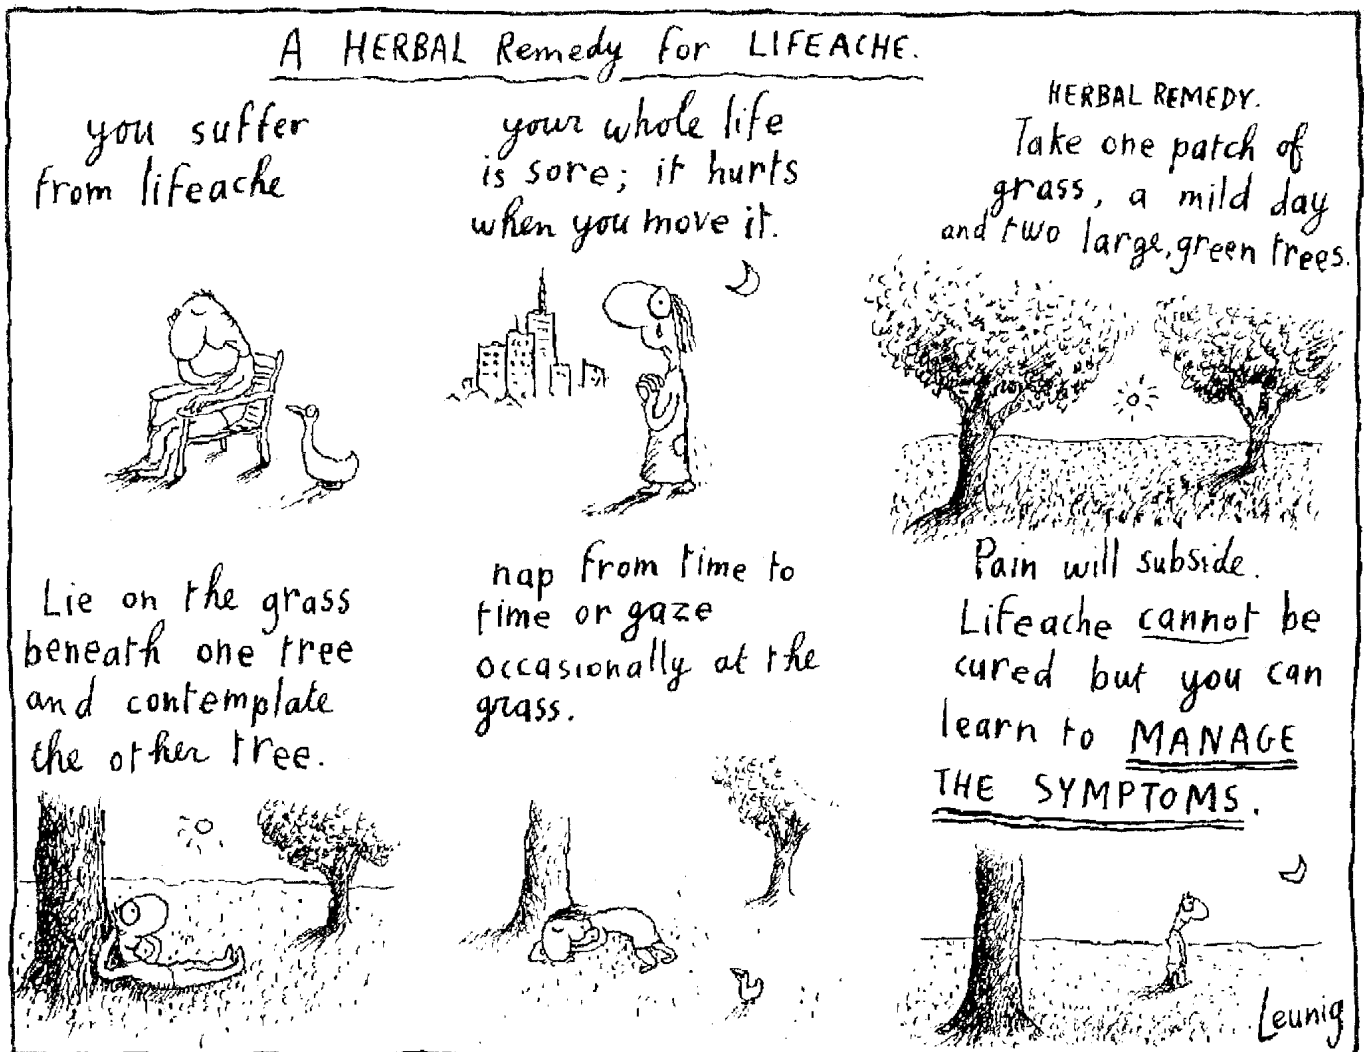 A HERBAL Remedy for LIFEACHE.
you suffer
from lifeache
your whole life
is sore; it hurts
when you move it.
HERBAL REMEDY.
Take one patch of
grass, a mild day
and two large, green trees.
Lie on the grass
beneath one tree
and contemplate
the other tree.
nap from time to
time or gaze
occasionally at the
grass.
Pain will subside.
Lifeache cannot be
cured but you can
learn to MANAGE
THE SYMPTOMS.
Leunig